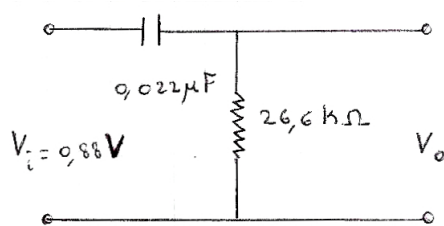 0,022µF
26,6 kΩ
Vi = 0,88V
Vo